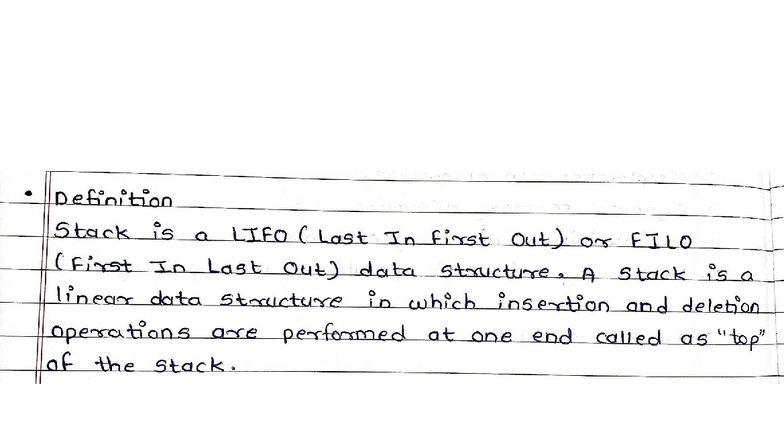 • Definition
Stack is a LIFO (Last In First Out) or FILO
(First In Last Out) data structure. A Stack is a
linear data structure in which insertion and deletion
operations are performed at one end called as "top"
of the stack.